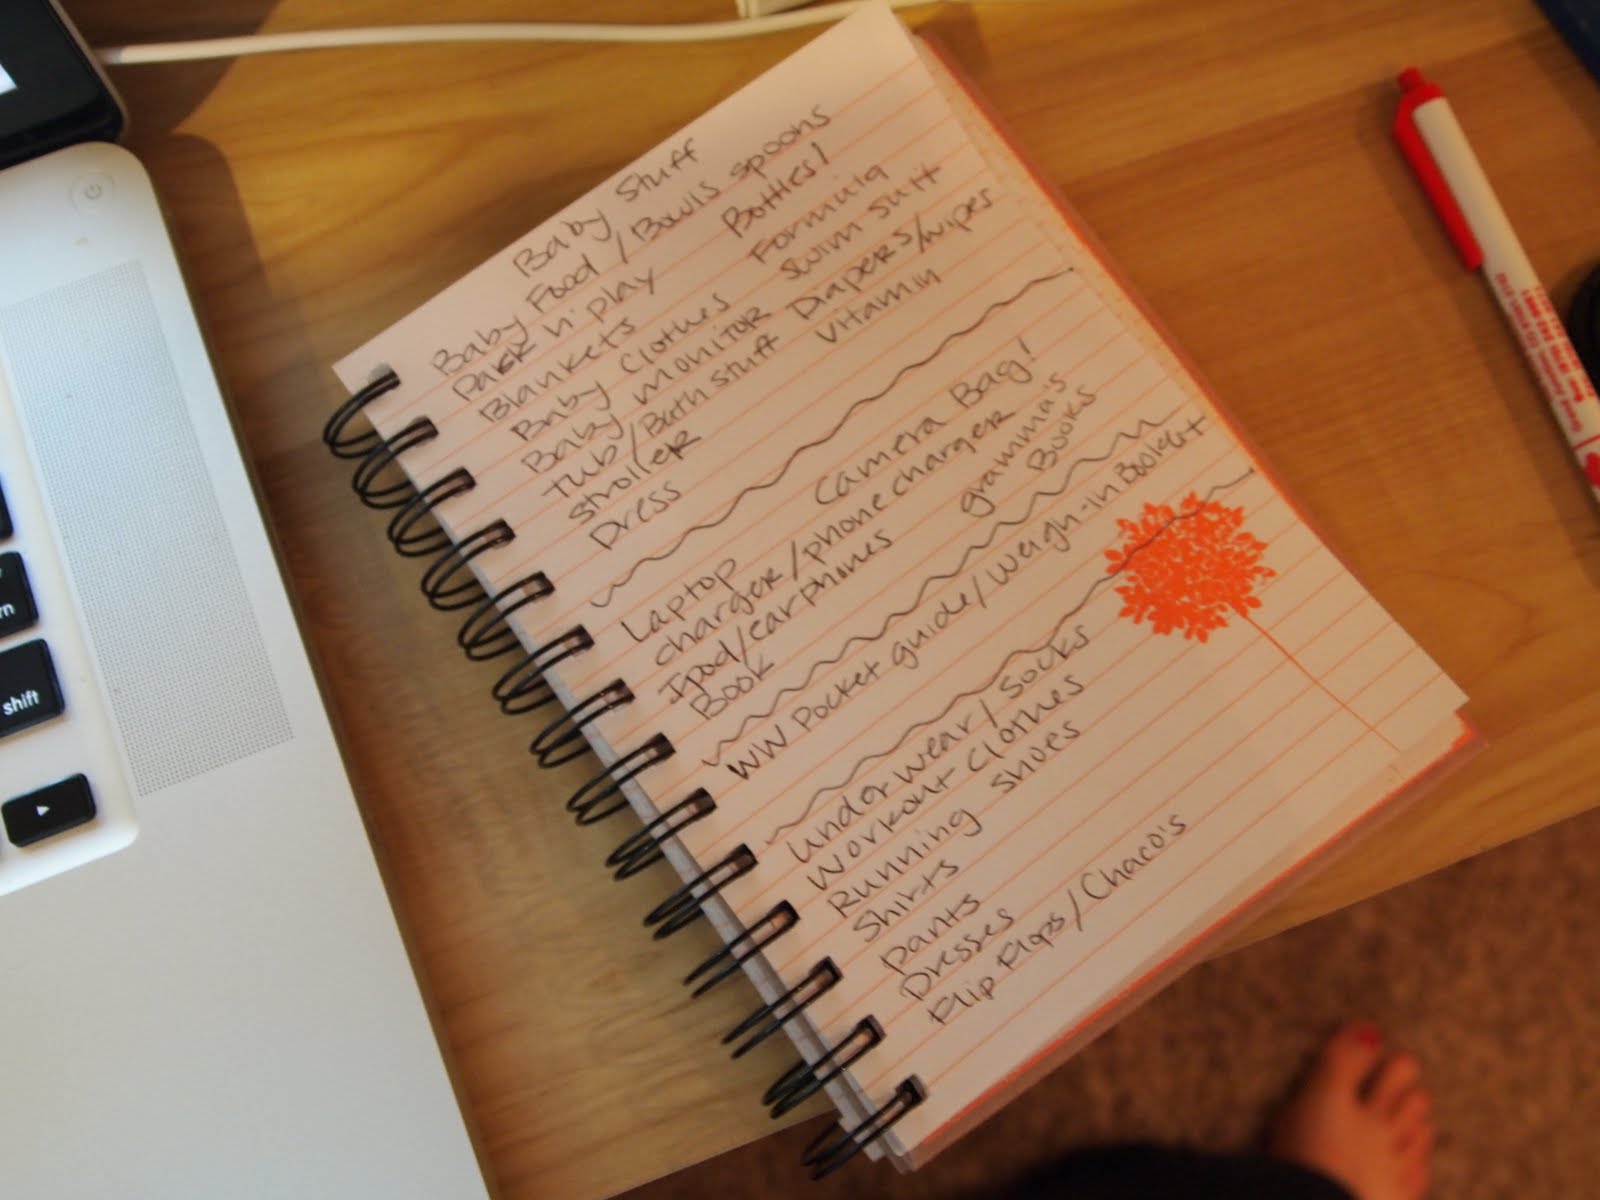 Baby Stuff
Baby Food / Bowls spoons
Pack n' play Bottles!
Blankets
Baby Clothes Formula
Baby monitor swim suit
Tub/Bath stuff Diapers/wipes
stroller vitamin
Dress
Laptop Camera Bag!
charger/phone charger
Ipod/earphones gramma's
Book Books
WW Pocket guide/Weigh-in Booklet
underwear/socks
workout clothes
Running shoes
Shirts
pants
Dresses
flip flops/Chaco's
shift